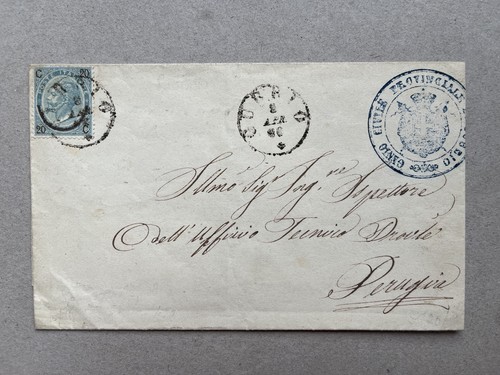 C 20
20 C
GUBBIO
8
APR
66
GENIO CIVILE PROVINCIALE
Illmo Sigr Ingre Ispettore
dell' Ufficio Tecnico Provle
Perugia